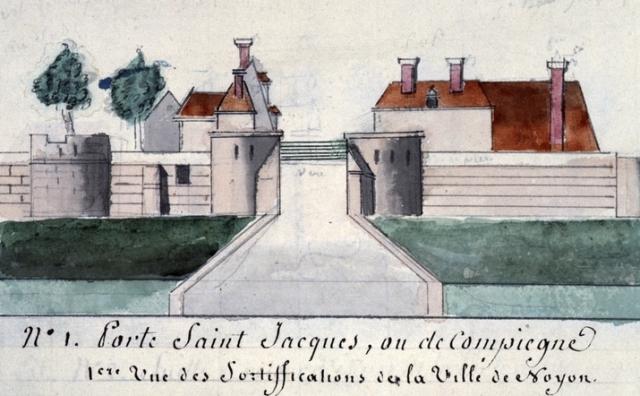 N° 1. Porte Saint Jacques, ou de Compiegne
1ere Vue des Fortiffications de la Ville de Noyon.